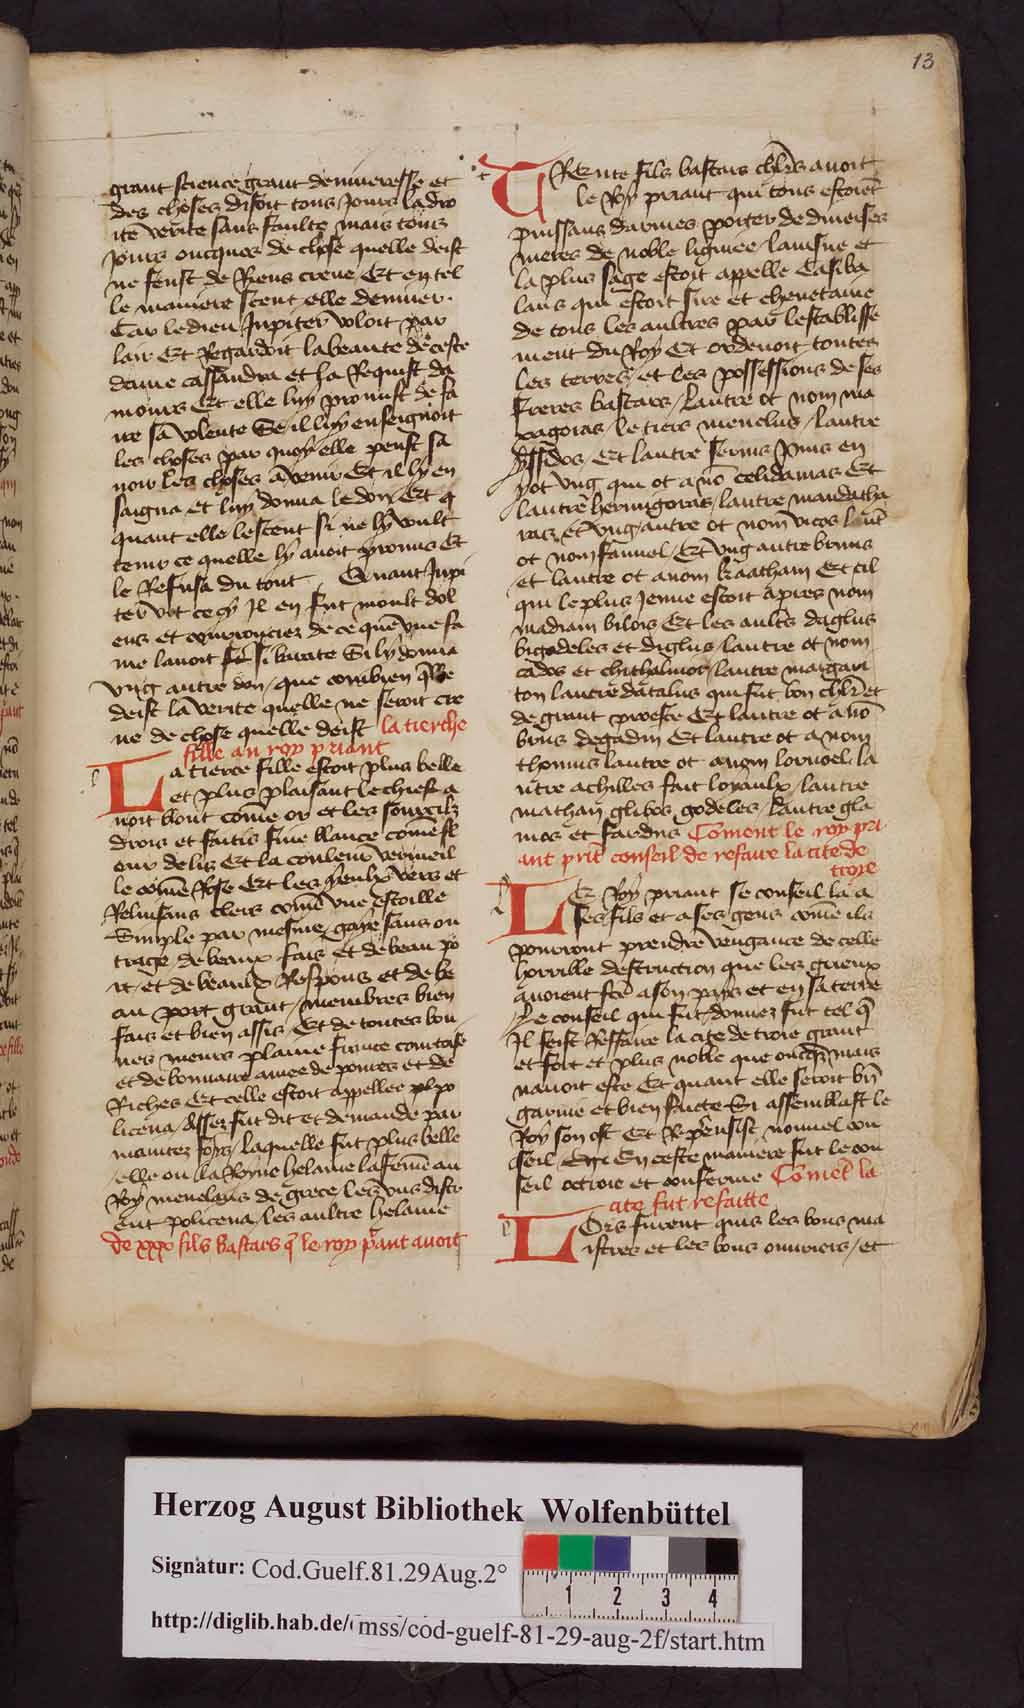 13
grant science grant demneresse et
des choses disoit tous Jours la dro
ite verite sans faulte mais tous
Jours oncques de chose quelle deist
ne feust de Riens creue Et en tel
le maniere sceut elle deviner.
Car le dieu Jupiter voloit par
lair Et Regardoit la beaute de ceste
dame cassandra et la Requist da
mours Et elle luy promist de fa
ire sa volente Se il luy enseignoit
les choses par quoy elle peust sa
voir les choses a venir Et il ly en
saigna et luy donna le don Et q̃
quant elle le sceut si ne ly voult
tenir ce quelle ly avoit promis Et
le Refusa du tout . Quant Jupi
ter vit ce Il en fut moult dol
ens et courouciez de ce que une fa
me lavoit si barate Si ly donna
ung autre don / que combien quelle
deist la verite quelle ne seroit cre
ue de chose quelle deist la tierche
fille au roy priant
La tierce fille estoit plus belle
et plus plaisant le chief a
voit blont com̃e or et les sourcilz
drois et faitis fine blance com̃e fl
our de lis Et la couleur vermeil
le com̃e Rose Et les yeulx vers et
Reluisans clers com̃e une estoille
Simple par mesure gaye sans ou
trage de beaux fais et de beau po
rt et de beaulx Respons et de be
au port grant / membres bien
fais et bien assis Et de toutes bon
nes meurs plaine france courtoise
et debonnaire amee de povres et de
Riches Et celle estoit appellee pol po
licena / Assez fut dit et demande par
maintez foys / laquelle fut plus belle
elle ou la Royne helaine la fem̃e au
Roy menelaus de grece les uns disoi
ent policena / les aultre helaine
de xxx fils bastars q̃ le roy priant avoit
TRente fils bastars chl̃rs avoit
le Roy priant qui tous estoiẽt
puissans darmes porter de diverses
meres de noble lignee / lainsne et
la plus sage estoit appelle Casiba
lans qui estoit sire et chevetaine
de tous les aultres par lestablisse
ment du Roy Et ordenoit toutes
les terres / et les possessions de ses
freres bastars / lautre ot nom ma
ragoras / le tiers menelus / lautre
Issidos / Et lautre sernis puis en
y ot ung qui ot a nõ celidamas Et
lautre hermigoras / lautre mandatha
ras Et ung autre ot nom vicos laut̃
ot nom fannel / Et ung autre brunus
et lautre ot a nom kraatham Et cil
qui le plus Jenne estoit apres nom
madiam bilois Et les aultr̃s daglus
bigodeles et diglus / lautre ot nom
cados et chithalmor / lautre margari
ton lautre datalus qui fut bon chl̃r et
de grant proesce Et lautre ot a nõ
brus degadin Et lautre ot a nom
thomus lautre ot a nom lornoel la
utre achilles fait loyaulx / lautre
mathan glibes godeles / lautre gla
mos et fardus Com̃ent le roy pri
ant prit conseil de refaire la cite de
troye
LE Roy priant se conseilla a
ses fils et a ses gens com̃e ils
pourront prendre vengance de celle
horrible destruction que les grieux
avoient fẽt a son pays et en sa terre
Le conseil qui fut donnez fut tel q̃
Il feist Reffaire la cite de troie grant
et fort et plus noble que oncq̃s mais
navoit este Et quant elle seroit bñ
garnie et bien faicte Si assemblast le
Roy son ost Et Repensist nouvel con
seil En ceste maniere fut le con
seil octroie et conferme Com̃et la
cite fut refaitte
LOrs furent quis les bons ma
istres et les bons ouvriers / et
Herzog August Bibliothek Wolfenbüttel
Signatur: Cod.Guelf.81.29Aug.2°
http://diglib.hab.de/ mss/cod-guelf-81-29-aug-2f/start.htm
1 2 3 4